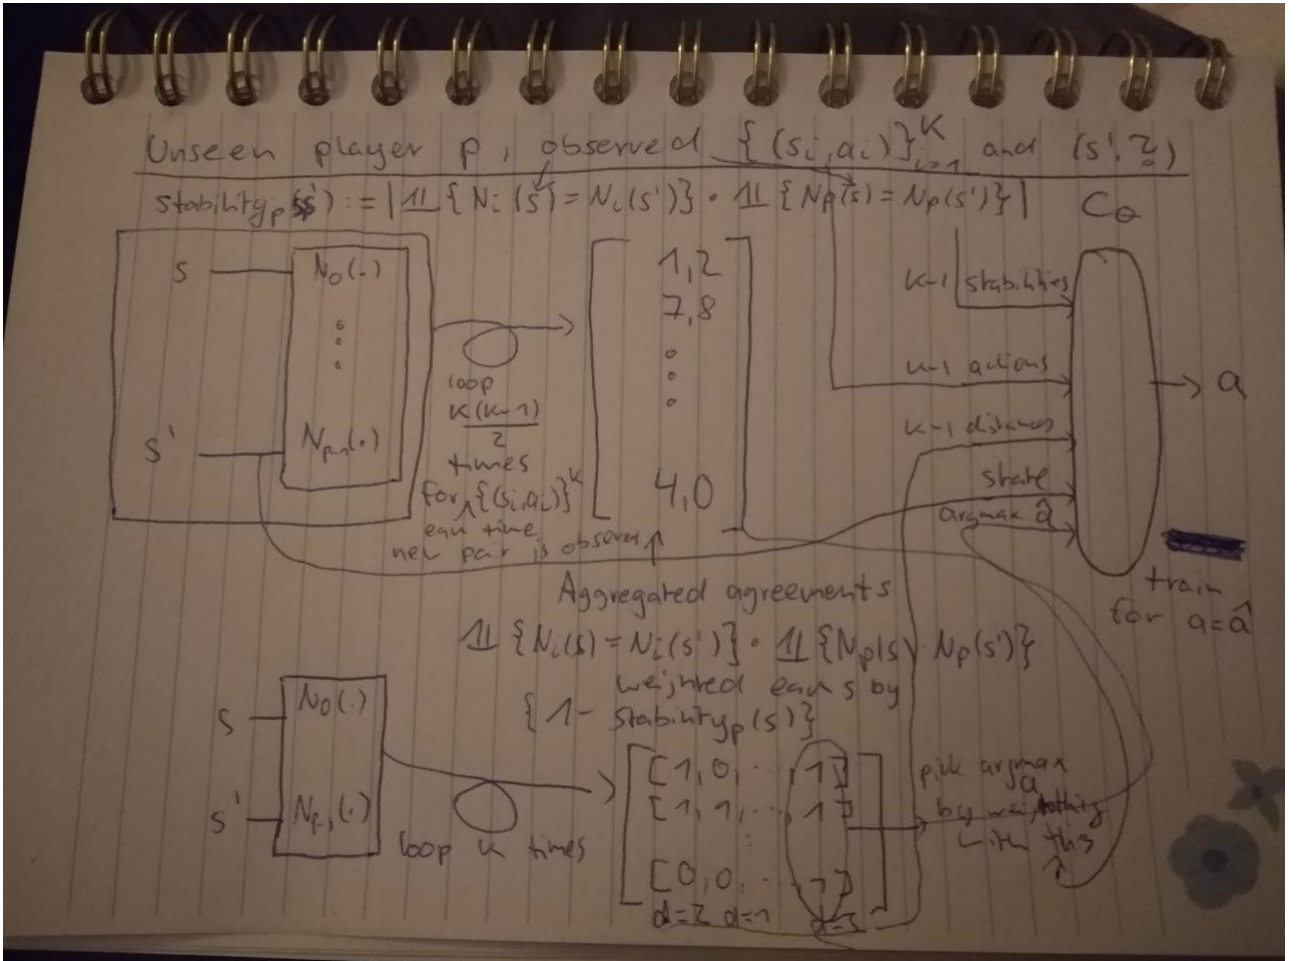 Unseen player p, observed {(si,ai)}^K_i=1 and (s',?)
stability_p(s') := |𝟙{Ni(s)=Ni(s')} · 𝟙{Np(s)=Np(s')}|
Cθ
s
N0(.)
s'
Np-1(.)
loop
K(K-1)
2
times
for {(si,ai)}^K
each time
new pair is observed
1,2
7,8
4,0
K-1 stabilities
K-1 actions
K-1 distances
state
argmax â
a
train
for a=â
Aggregated agreements
𝟙{Ni(s)=Ni(s')} · 𝟙{Np(s) Np(s')}
weighted each s by
{1- stability_p(s)}
s
N0(.)
s'
Np-1(.)
loop K times
[1,0,...,1]
[1,1,...,1]
[0,0,...,1]
d=2 d=1 d=3
pick argmax
a
by weighting
with this